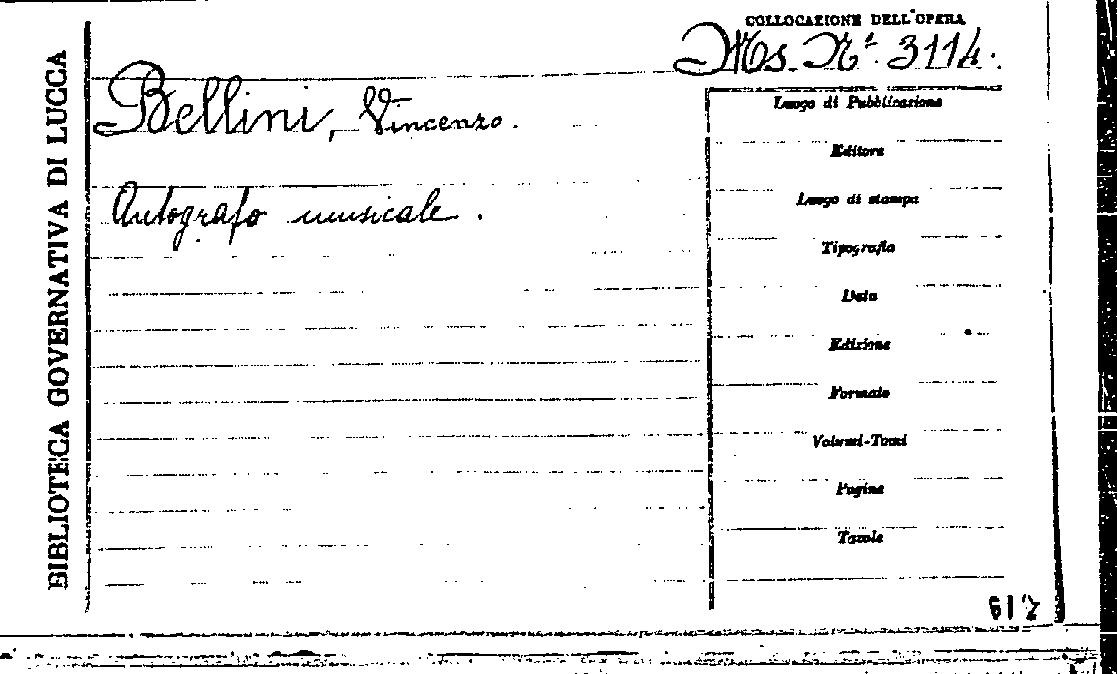 BIBLIOTECA GOVERNATIVA DI LUCCA
COLLOCAZIONE DELL'OPERA
Ms. Nº. 3114.
Bellini, Vincenzo.
Autografo musicale.
Luogo di Pubblicazione
Editore
Luogo di stampa
Tipografia
Data
Edizione
Formato
Volumi-Tomi
Pagine
Tavole